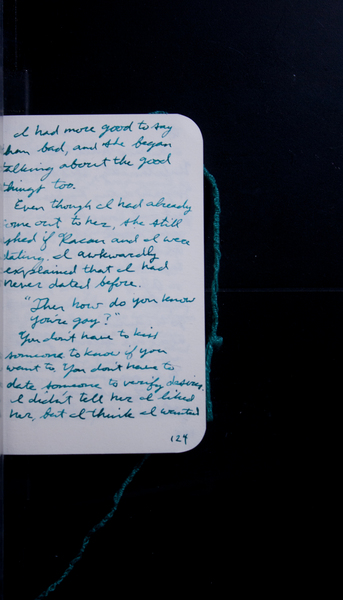 I had more good to say
than bad, and she began
talking about the good
things too.
Even though I had already
come out to her, she still
asked if Kacan and I were
dating. I awkwardly
explained that I had
never dated before.
"Then how do you know
you're gay?"
You don't have to kiss
someone to know if you
want to. You don't have to
date someone to verify desires.
I didn't tell her I liked
her, but I think I wanted
124